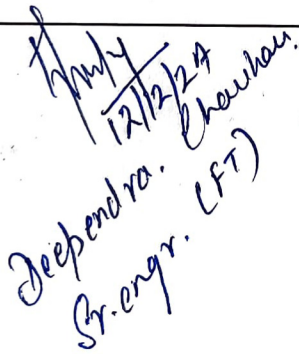 12/12/27
Deependra. Chauhan.
Sr. engr. (FT)